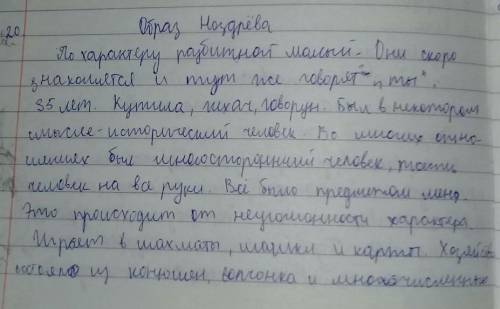 20.
Образ Ноздрёва
По характеру разбитной малый. Они скоро
знакомятся и тут же говорят "ты".
35 лет. Кутила, лихач, говорун. Был в некотором
смысле-исторический человек. Во многих отно-
шениях был многосторонний человек, то есть
человек на все руки. Всё было предметом мено.
Это происходит от неугомонности характера.
Играет в шахматы, шашки и карты. Хозяйс
из конюшен, волчонка и многочисленных